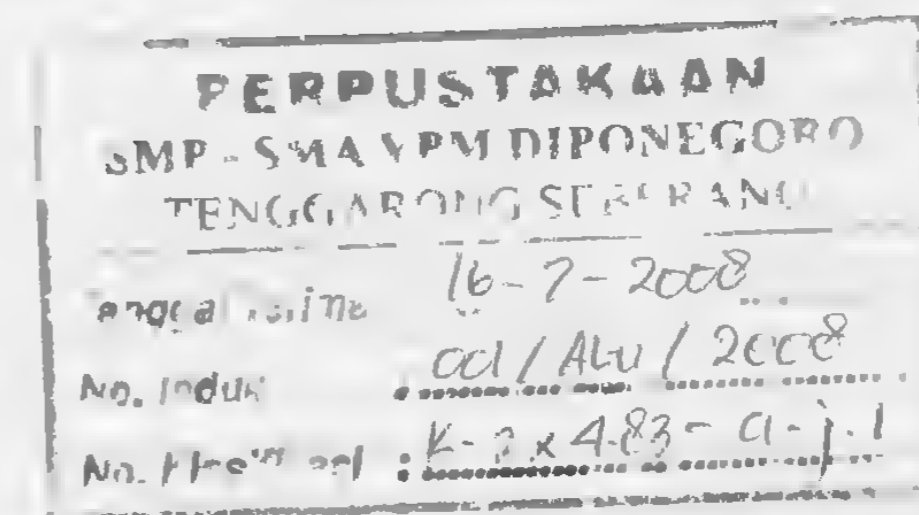 PERPUSTAKAAN
SMP - SMA YPM DIPONEGORO
TENGGARONG SEBERANG
Tanggal Terima 16-7-2008
No. Induk : 001 / ALU / 2008
No. Klasifikasi :